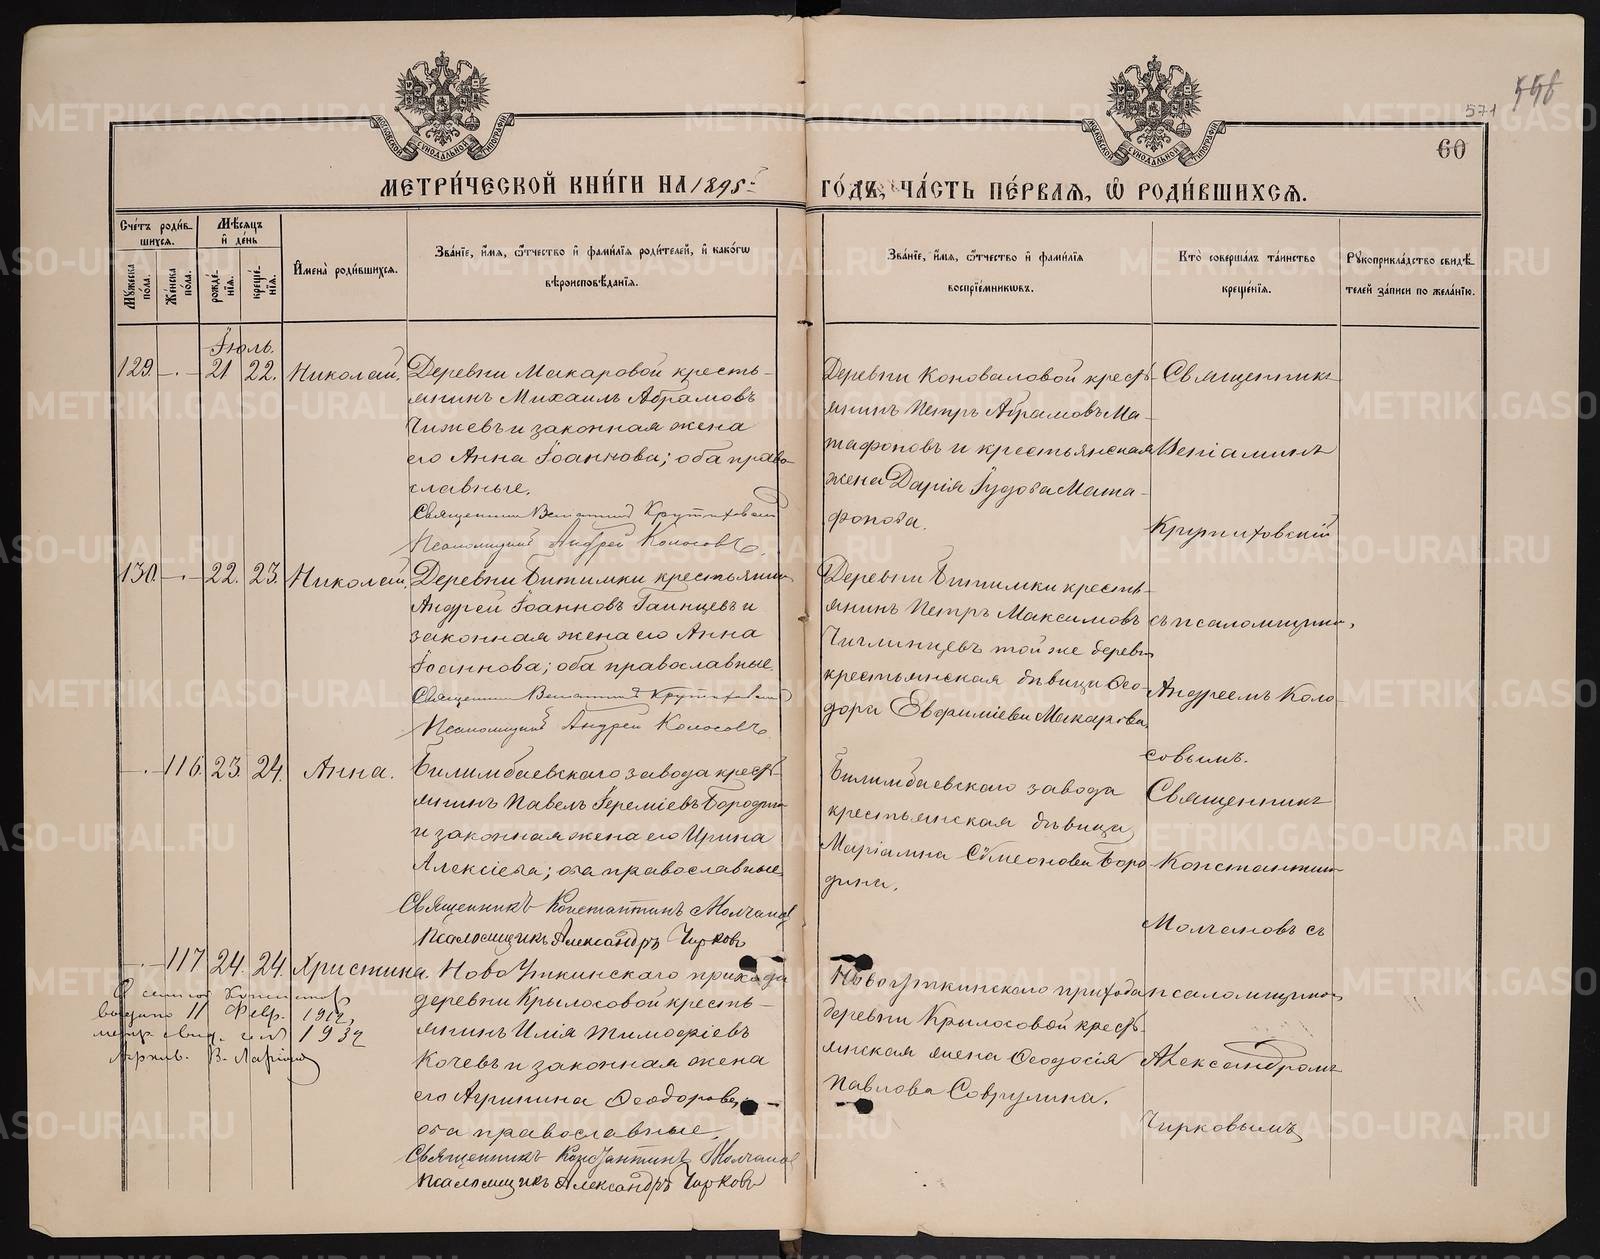 558
571
60
МОСКОВСКОЙ СѴНОДАЛЬНОЙ ТИПОГРАФІИ
МОСКОВСКОЙ СѴНОДАЛЬНОЙ ТИПОГРАФІИ
МЕТРИ́ЧЕСКОЙ КНИ́ГИ НА 1895 г. ГО́ДЪ, ЧА́СТЬ ПЕ́РВАЯ, Ѡ РОДИ́ВШИХСЯ.
Сче́тъ роди́вшихся.
Му́жеска по́ла.
Же́нска по́ла.
Мѣ́сяцъ и де́нь
рожде́нія.
креще́нія.
И҆мена̀ роди́вшихся.
Зва́ніе, и҆́мя, ѻ҆́тчество и҆ фами́лія роди́телей, и҆ како́гѡ вѣроисповѣ́данія.
Зва́ніе, и҆́мя, ѻ҆́тчество и҆ фами́лія воспріе́мникѡвъ.
Кто̀ соверша́лъ та́инство креще́нія.
Рукоприкла́дство свидѣ́телей за́писи по жела́нію.
Іюль.
129. — 21 22. Николай.
Деревни Макаровой кресть-
янинъ Михаилъ Абрамовъ
Чижевъ и законная жена
его Анна Іоаннова; оба право-
славные.
Священникъ Веніаминъ Крутиховскій
Псаломщикъ Андрей Колосовъ.
Деревни Коноваловой кресть-
янинъ Петръ Абрамовъ Ма-
тафоновъ и крестьянская
жена Дарія Іудова Мата-
фонова.
Священникъ
Веніаминъ
Крутиховскій
съ псаломщиком,
Андреемъ Коло-
совымъ.
130 — 22. 23. Николай.
Деревни Битимки крестьянин
Андрей Іоанновъ Гаинцевъ и
законная жена его Анна
Іоаннова; оба православные.
Священникъ Веніаминъ Крутиховскій
Псаломщикъ Андрей Колосовъ.
Деревни Битимки кресть-
янинъ Петръ Максимовъ
той же дерев.
крестьянская дѣвица Ѳео-
дора Евфиміева Макарова.
— 116. 23. 24. Анна.
Билимбаевскаго завода кресть-
янинъ Павелъ Іереміевъ Бородин
и законная жена его Ирина
Алексіева; оба православные.
Священникъ Константинъ Молчанов
Псаломщикъ Александръ Чирковъ
Билимбаевскаго завода
крестьянская дѣвица
Маріамна Сѵмеонова Боро-
дина.
Священникъ
Константин
Молчановъ съ
псаломщиком
Александромъ
Чирковымъ
— 117. 24. 24. Христина.
Ново Уткинскаго прихода
деревни Крылосовой кресть-
янинъ Илія Тимофіевъ
Кочевъ и законная жена
его Агрипина Ѳеодорова;
оба православные.
Священникъ Константинъ Молчанов
Псаломщикъ Александръ Чирковъ
Новоуткинскаго прихода
деревни Крылосовой кресть-
янская жена Ѳеодосія
Павлова Соврулина.
выдано 11 Февр. 1912,
метр. свид. за № 1932